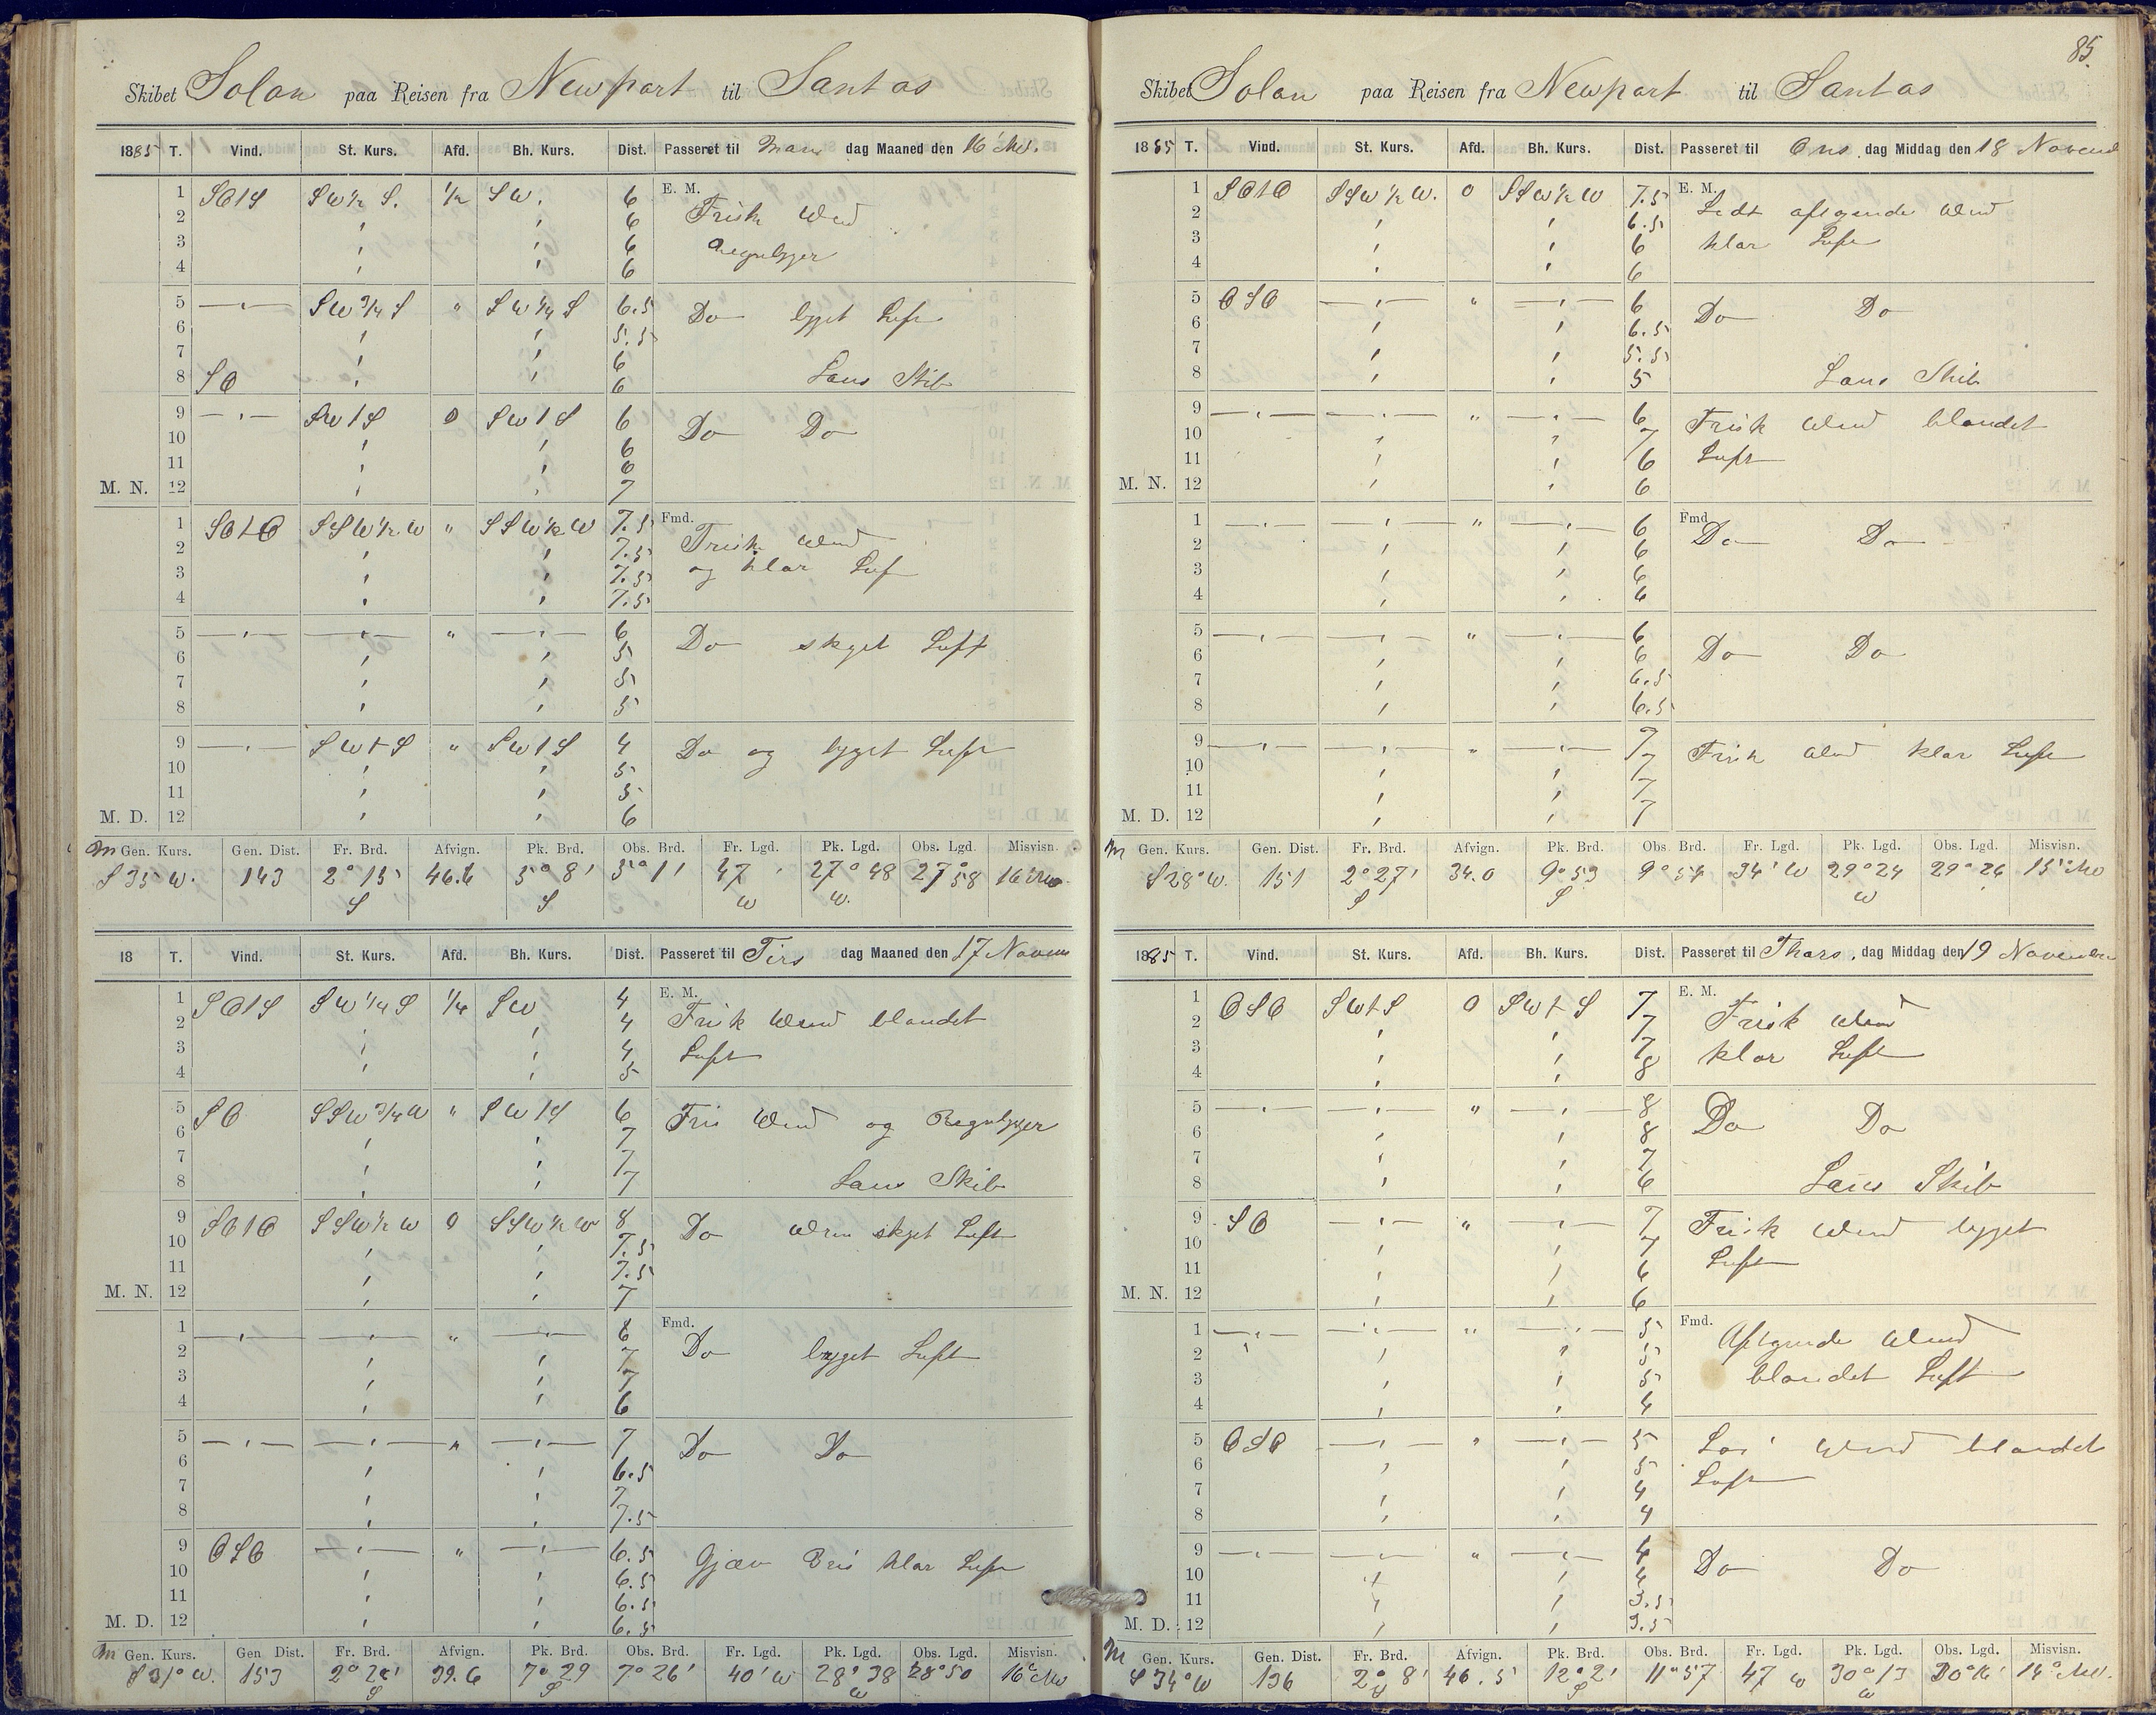 Skibet Solon paa Reisen fra Newport til Santos
1885 T. Vind. St. Kurs. Afd. Bh. Kurs. Dist. Passeret til Man dag Maaned den 16
1 SO1S SW½ S. ½ SW. 6 E. M.
2 6 Frisk Wind
3 6 Regnbyger
4 6
5 SW¾S " SW¼S 6.5 Do byget Luft
6 5.5
7 6
8 SO 6 Lens Skib
9 SW1S 0 SW1S 6 Do Do
10 6
11 6
M. N. 12 7
1 SO1O SSW½W " SSW½W 7.5 Fmd.
2 7.5 Frisk Wind
3 7.5 og klar Luf
4 7.5
5 " 6 Do skyet Luft
6 5
7 5
8 5
9 SW1S " SW1S 4 Do og bygget Luft
10 5
11 5
M. D. 12 6
Gen. Kurs. Gen. Dist. Fr. Brd. Afvign. Pk. Brd. Obs. Brd. Fr. Lgd. Pk. Lgd. Obs. Lgd. Misvisn.
S 35 W. 143 2° 15 46.6 5° 8' 5° 1' 47 27° 48 27° 58 16°
S S W W.
18 T. Vind. St. Kurs. Afd. Bh. Kurs. Dist. Passeret til Tirs dag Maaned den 17 Novem
1 SO1S SW¼S ¼ SW 4 E. M.
2 4 Frisk Wind blandet
3 4 Luft
4 5
5 SO SSW¾W " SW1S 6 Fris Wind og Regnbyger
6 7
7 7
8 7 Lens Skib
9 SO1O SSW½W 0 SSW½W 8 Do skyet Luft
10 7.5
11 7.5
M. N. 12 7
1 " 6 Fmd.
2 7 Do bygget Luft
3 7
4 6
5 " 7 Do Do
6 6.5
7 7
8 7.5
9 OSO " 6.5 Gjæv Bris klar Luft
10 6.5
11 6.5
M. D. 12 6.5
Gen. Kurs. Gen Dist. Fr. Brd. Afvign. Pk. Brd. Obs. Brd. Fr. Lgd. Pk. Lgd. Obs. Lgd. Misvisn.
S 31° W. 153 39.6 7° 29 7° 26' 40' W 28° 38 28° 50 16°
S S W
85.
Skibet Solon paa Reisen fra Newport til Santos
1885 T. Vind. St. Kurs. Afd. Bh. Kurs. Dist. Passeret til Ons dag Middag den 18 Novemb
1 SO1O SSW½W. 0 SSW½W 7.5 E. M.
2 6.5 Lidt aftgende Wind
3 6 klar Luft
4 6
5 OSO " 6 Do Do
6 6.5
7 5.5
8 5 Lens Skib
9 " 6 Frisk Wind blandet
10 7
11 6 Luft
M. N. 12 6
1 " 6 Fmd.
2 6 Do Do
3 6
4 6
5 " 6 Do Do
6 6
7 6.5
8 6.5
9 " 7 Frisk Wind klar Luft
10 7
11 7
M. D. 12 7
Gen. Kurs. Gen. Dist. Fr. Brd. Afvign. Pk. Brd. Obs. Brd. Fr. Lgd. Pk. Lgd. Obs. Lgd. Misvisn.
S 28° W. 151 2° 27' 34.0 9° 53 9° 54 34' W 29° 24 29° 26 15°
S S W
1885 T. Vind. St. Kurs. Afd. Bh. Kurs. Dist. Passeret til Thors dag Middag den 19 November
1 OSO SW1S 0 SW1S 7 E. M.
2 7 Frisk Wind
3 7 klar Luft
4 8
5 " 8 Do Do
6 8
7 7
8 6 Lens Skib
9 SO " 7 Frisk Wind bygget
10 7
11 6 Luft
M. N. 12 6
1 " 5 Fmd.
2 5 Aftgende Wind
3 5 blandet Luft
4 4
5 OSO " 5 Wind blandet
6 5 Luft
7 4
8 4
9 " 4 Do Do
10 4
11 3.5
M. D. 12 3.5
Gen. Kurs. Gen. Dist. Fr. Brd. Afvign. Pk. Brd. Obs. Brd. Fr. Lgd. Pk. Lgd. Obs. Lgd. Misvisn.
S 34° W 136 2° 8' 46.5 12° 2' 11° 57 47 W 30° 13 30° 16' 14°
S S W